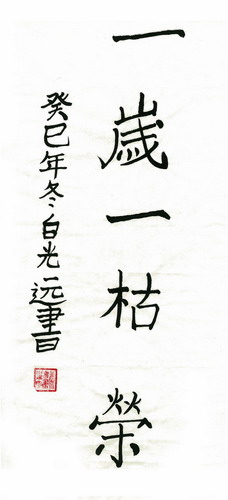 一歲一枯榮
癸巳年冬白光远書